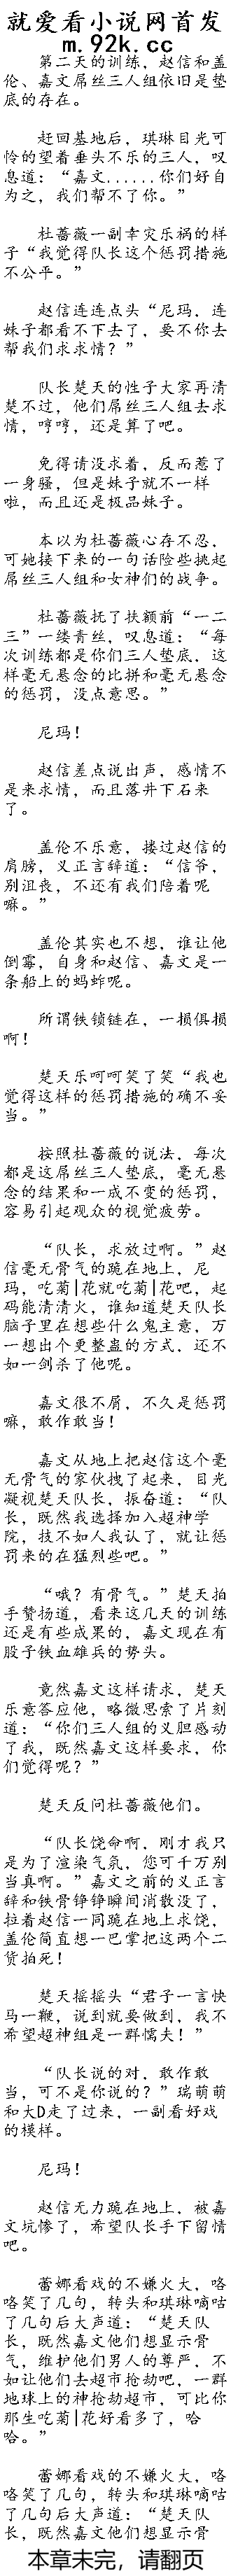 就爱看小说网首发
m.92k.cc
第二天的训练，赵信和盖
伦、嘉文屌丝三人组依旧是垫
底的存在。
赶回基地后，琪琳目光可
怜的望着垂头不乐的三人，叹
息道：“嘉文......你们好自
为之，我们帮不了你。”
杜蔷薇一副幸灾乐祸的样
子“我觉得队长这个惩罚措施
不公平。”
赵信连连点头“尼玛，连
妹子都看不下去了，要不你去
帮我们求求情？”
队长楚天的性子大家再清
楚不过，他们屌丝三人组去求
情，哼哼，还是算了吧。
免得请没求着，反而惹了
一身骚，但是妹子就不一样
啦，而且还是极品妹子。
本以为杜蔷薇心存不忍，
可她接下来的一句话险些挑起
屌丝三人组和女神们的战争。
杜蔷薇抚了扶额前“一二
三”一缕青丝，叹息道：“每
次训练都是你们三人垫底，这
样毫无悬念的比拼和毫无悬念
的惩罚，没点意思。”
尼玛！
赵信差点说出声，感情不
是来求情，而且落井下石来
了。
盖伦不乐意，搂过赵信的
肩膀，义正言辞道：“信爷，
别沮丧，不还有我们陪着呢
嘛。”
盖伦其实也不想，谁让他
倒霉，自身和赵信、嘉文是一
条船上的蚂蚱呢。
所谓铁锁链在，一损俱损
啊！
楚天乐呵呵笑了笑“我也
觉得这样的惩罚措施的确不妥
当。”
按照杜蔷薇的说法，每次
都是这屌丝三人垫底，毫无悬
念的结果和一成不变的惩罚，
容易引起观众的视觉疲劳。
“队长，求放过啊。”赵
信毫无骨气的跪在地上，尼
玛，吃菊|花就吃菊|花吧，起
码能清清火，谁知道楚天队长
脑子里在想些什么鬼主意，万
一想出个更整蛊的方式，还不
如一剑杀了他呢。
嘉文很不屑，不久是惩罚
嘛，敢作敢当！
嘉文从地上把赵信这个毫
无骨气的家伙拽了起来，目光
凝视楚天队长，振奋道：“队
长，既然我选择加入超神学
院，技不如人我认了，就让惩
罚来的在猛烈些吧。”
“哦？有骨气。”楚天拍
手赞扬道，看来这几天的训练
还是有些成果的，嘉文现在有
股子铁血雄兵的势头。
竟然嘉文这样请求，楚天
乐意答应他，略微思索了片刻
道：“你们三人组的义胆感动
了我，既然嘉文这样要求，你
们觉得呢？”
楚天反问杜蔷薇他们。
“队长饶命啊，刚才我只
是为了渲染气氛，您可千万别
当真啊。”嘉文之前的义正言
辞和铁骨铮铮瞬间消散没了，
拉着赵信一同跪在地上求饶，
盖伦简直想一巴掌把这两个二
货拍死！
楚天摇摇头“君子一言快
马一鞭，说到就要做到，我不
希望超神组是一群懦夫！”
“队长说的对，敢作敢
当，可不是你说的？”瑞萌萌
和大D走了过来，一副看好戏
的模样。
尼玛！
赵信无力跪在地上，被嘉
文坑惨了，希望队长手下留情
吧。
蕾娜看戏的不嫌火大，咯
咯笑了几句，转头和琪琳嘀咕
了几句后大声道：“楚天队
长，既然嘉文他们想显示骨
气，维护他们男人的尊严，不
如让他们去超市抢劫吧，一群
地球上的神抢劫超市，可比你
那生吃菊|花好看多了，哈
哈。”
蕾娜看戏的不嫌火大，咯
咯笑了几句，转头和琪琳嘀咕
了几句后大声道：“楚天队
长，既然嘉文他们想显示骨
本章未完，请翻页